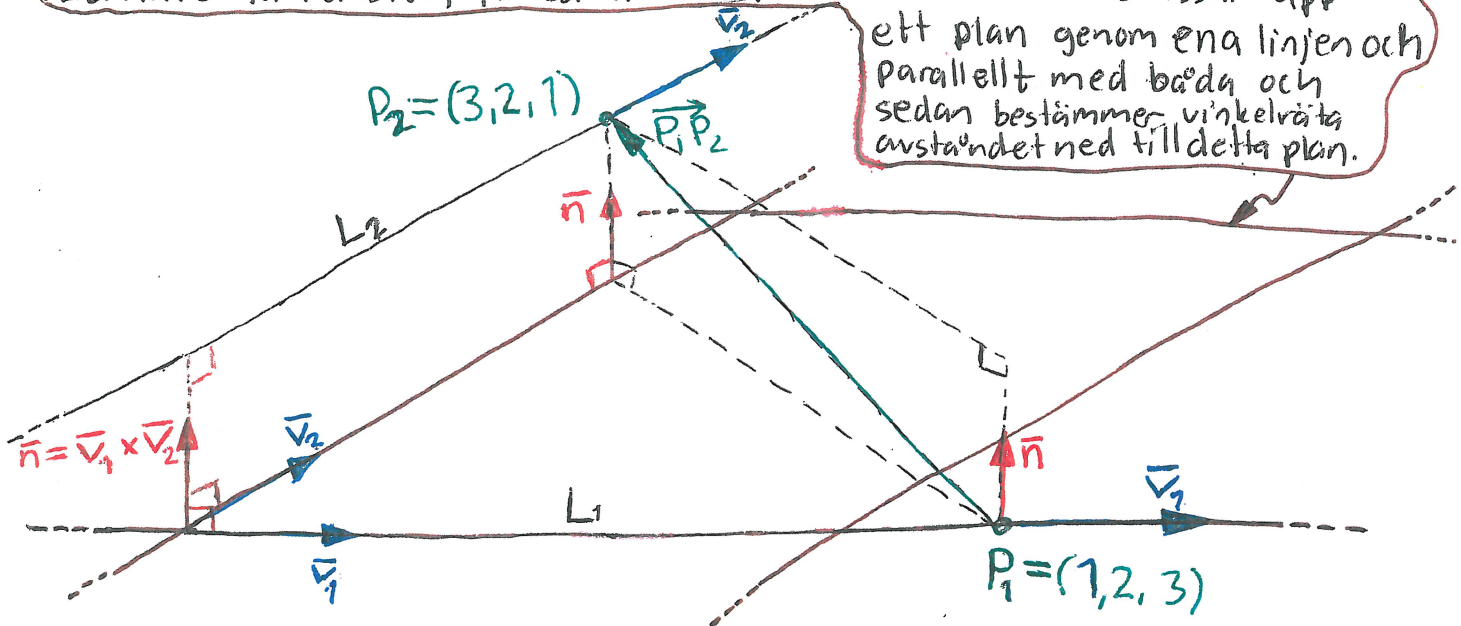 v̄₂
ett plan genom ena linjen och
parallellt med båda och
sedan bestämmer vinkelräta
avståndet ned till detta plan.
P₂=(3,2,1)
P₁P₂
n̄
L₂
n̄=v̄₁×v̄₂
v̄₂
n̄
v̄₁
L₁
v̄₁
P₁=(1,2,3)